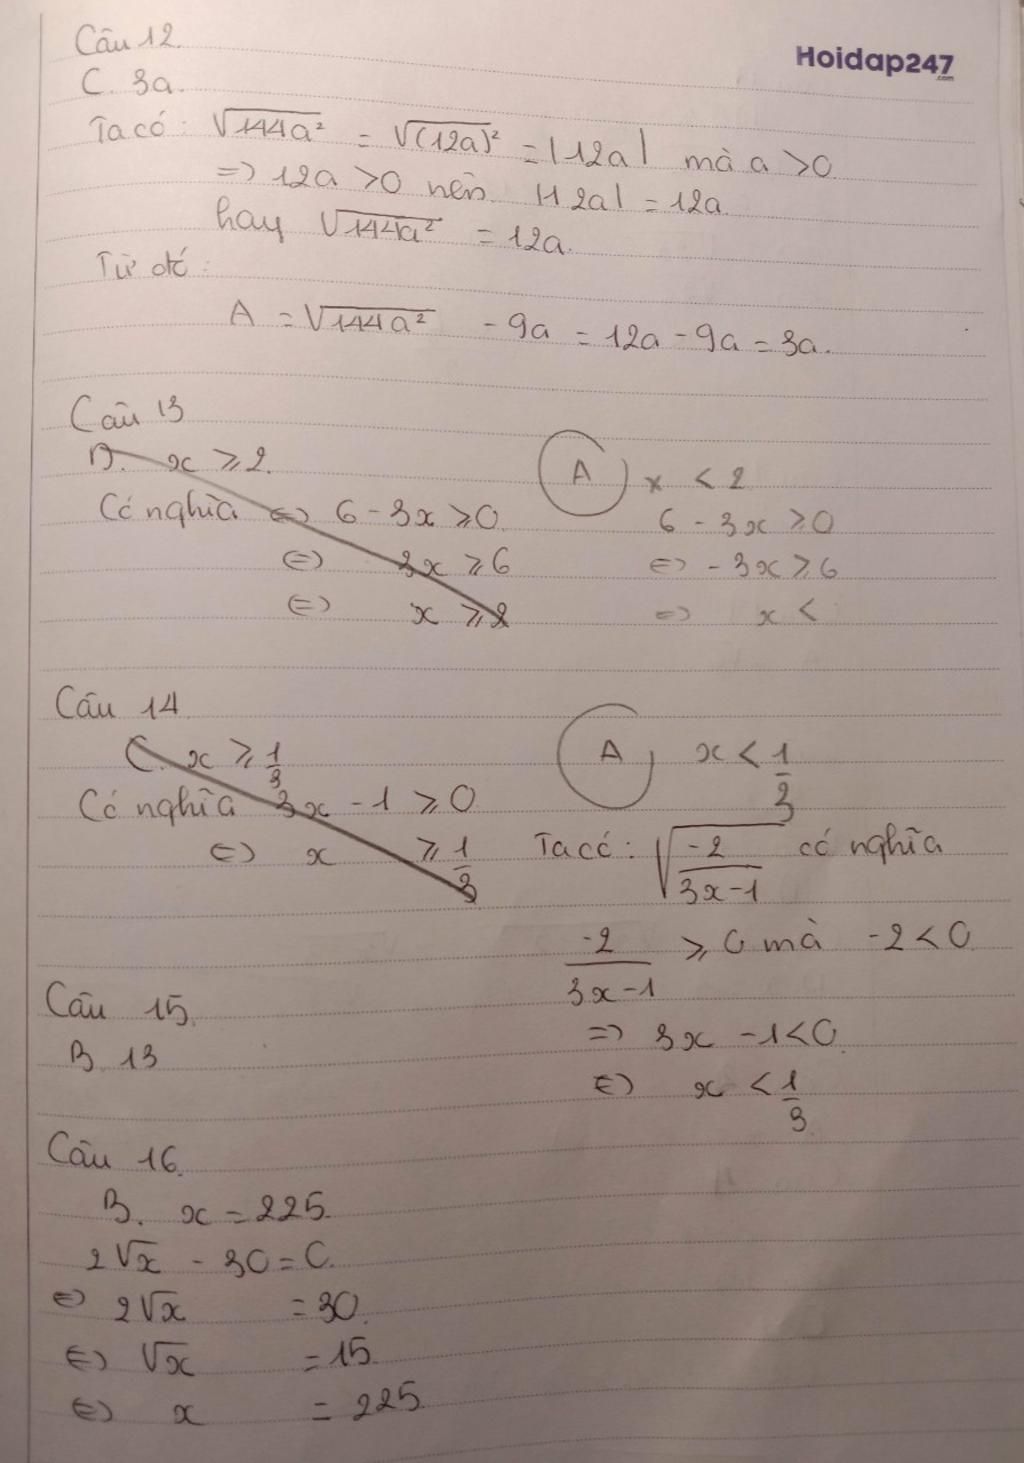 Câu 12.
Hoidap247
.com
C. 3a.
Ta có: √144a² = √(12a)² = |12a| mà a > 0
=> 12a > 0 nên |12a| = 12a
hay √144a² = 12a.
Từ đó:
A = √144a² - 9a = 12a - 9a = 3a.
Câu 13
B. x ⩾ 2.
Có nghĩa <=> 6 - 3x ⩾ 0.
<=> 3x ⩾ 6
<=> x ⩾ 2
A x < 2
6 - 3x ⩾ 0
<=> -3x ⩾ 6
<=> x <
Câu 14
C. x ⩾ 1/3
Có nghĩa 3x - 1 ⩾ 0
<=> x ⩾ 1/3
A, x < 1/3
Ta có: √(-2/(3x-1)) có nghĩa
-2/(3x-1) ⩾ 0 mà -2 < 0
=> 3x - 1 < 0
<=> x < 1/3.
Câu 15.
B. 13
Câu 16.
B. x = 225.
2√x - 30 = 0.
<=> 2√x = 30.
<=> √x = 15.
<=> x = 225